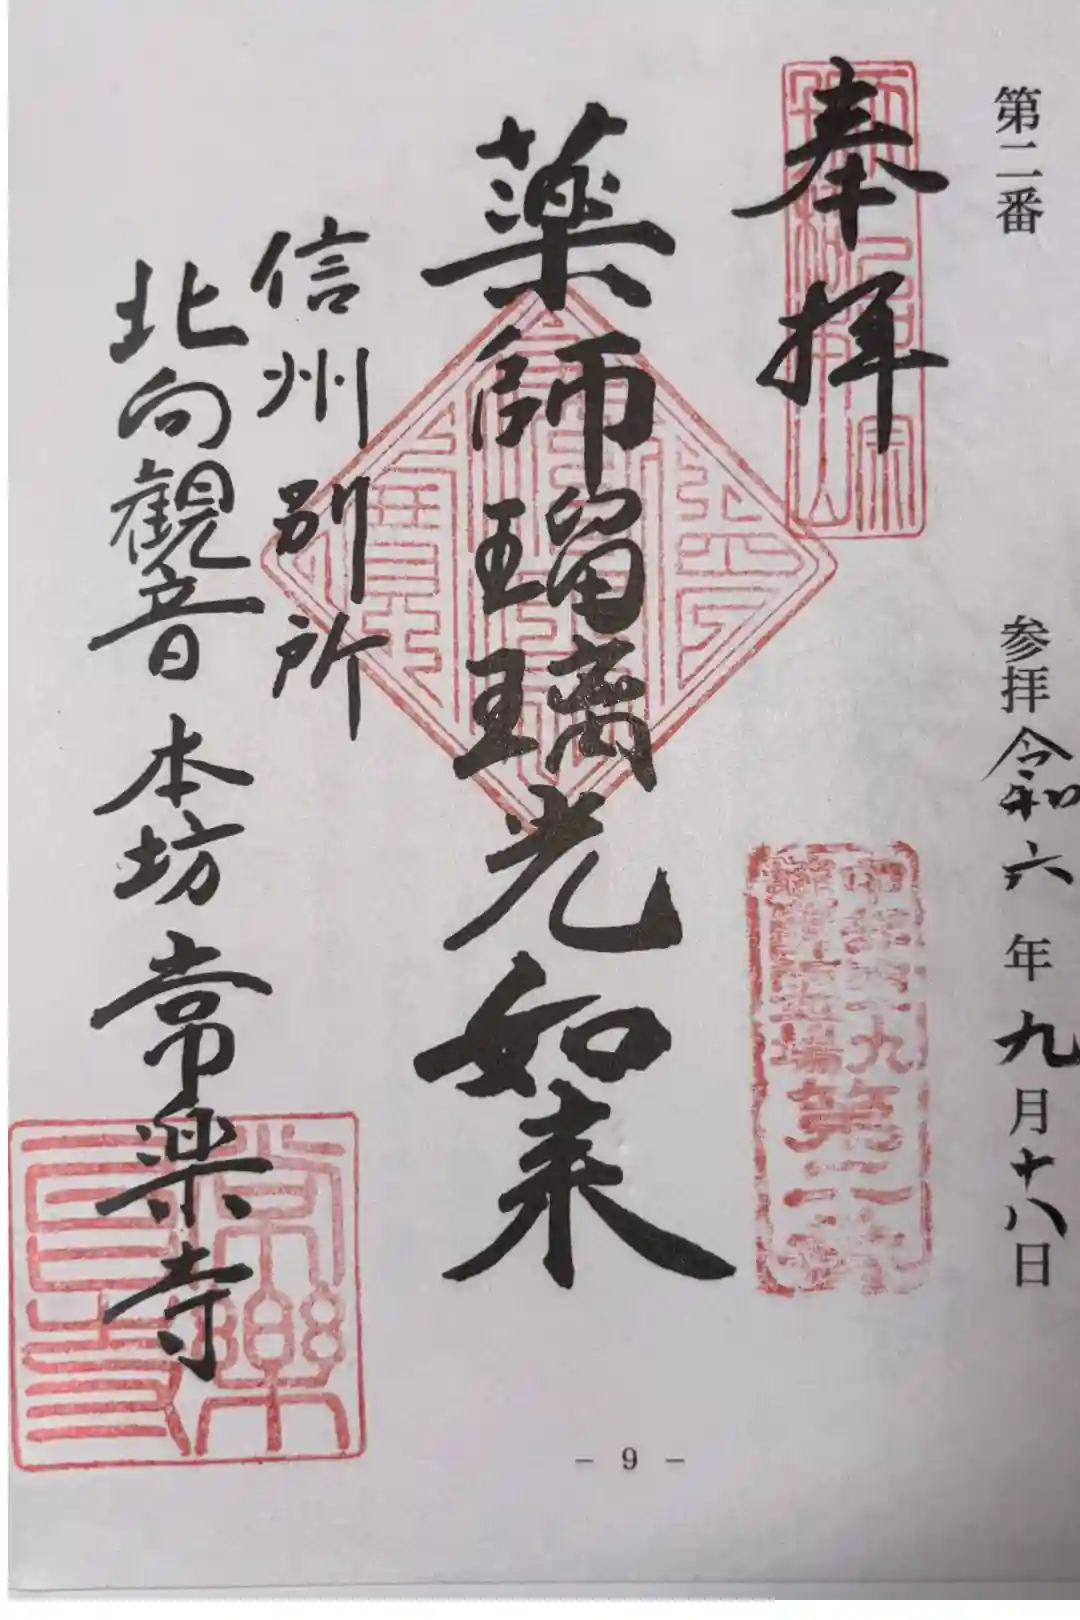 第二番
参拝令和六年九月十八日
奉拝
薬師瑠璃光如来
信州別所
北向観音本坊常楽寺
- 9 -